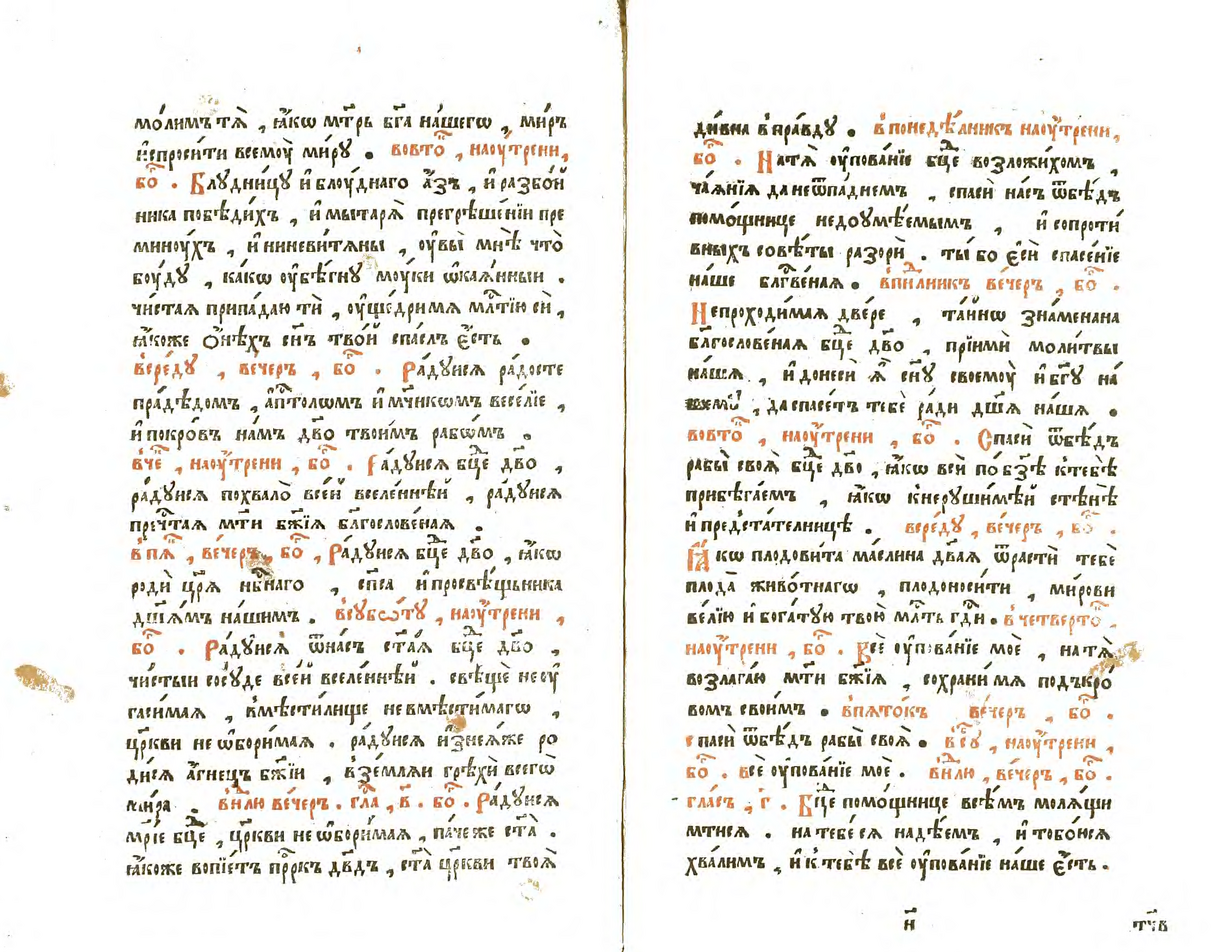 мо́лимъ тѧ̀ , ꙗ҆́кѡ мт҃рь бг҃а на́шегѡ , ми́ръ
и҆спроси́ти всемоу̀ ми́рꙋ . вовто̑ , наоу҆́трени,
бо̑ . Блꙋдни́цꙋ и҆ блоу́днаго а҆́зъ , и҆ разбо́й
ника побѣди́хъ , и҆ мытарѧ̀ прегрѣше́нїи пре
миноу́хъ , и҆ ниневи́тѧны , оу҆вы̀ мнѣ̀ что̀
боу́дꙋ , ка́кѡ оу҆бѣ́гнꙋ моу́ки ѡ҆каѧ́нныи .
чи́стая припа́даю тѝ , оу҆ще́дримѧ мл҃тїю сѝ ,
ꙗ҆́коже ѻ҆нѣ́хъ сн҃ъ тво́й спа́слъ є҆́сть .
въсре́дꙋ , ве́черъ , бо̑ . Ра́дꙋисѧ ра́досте
пра́дѣдомъ , а҆пⷭ҇толѡмъ и҆ мч҃нкѡмъ весе́лїе ,
и҆ покро́въ на́мъ дв҃о твои́мъ рабѡ́мъ .
в̾че̑ , наоу҆́трени , бо̑ . Ра́дꙋисѧ бц҃е дв҃о ,
ра́дꙋисѧ похвало̀ все́й вселе́ннѣй , ра́дꙋисѧ
преч҇тая мт҃и бж҃їѧ бл҃гослове́ная .
в̾пѧ̑ , ве́черъ , бо̑ , Ра́дꙋисѧ бц҃е дв҃о , ꙗ҆́кѡ
родѝ цр҃ѧ нб҃наго , сп҃са и҆ просвѣ́щьника
дш҃а́мъ на́шимъ . в̾сꙋбѡ́тꙋ , наоу҆́трени ,
бо̑ . Ра́дꙋисѧ ѿна́съ ст҃а́ѧ бц҃е дв҃о ,
чи́стыи сосꙋ́де все́й вселе́ннѣй . свѣ́ще не оу҆
гаси́маѧ , в̾мѣсти́лище невмѣсти́магѡ ,
цр҃кви не ѡ҆бори́маѧ . ра́дꙋисѧ и҆з̾неѧ́же ро
ди́сѧ а҆́гнецъ бж҃їи , в̾зе́млѧи грѣхѝ всегѡ̀
ми́ра . в̾нл҃ю ве́черъ . гла̑ , в҃ . бо̑ . Ра́дꙋисѧ
мр҃іе бц҃е , цр҃кви не ѡ҆бори́маѧ , па́че же ст҃а̀ .
ꙗ҆́коже вопїе́тъ пр҇ркъ дв҃дъ , ст҃а̀ цр҃кви твоѧ̀
ди́вна в̾пра́вдꙋ . в̾понедѣ́лникъ наоу҆́трени,
бо̑ . На тѧ̀ оу҆пова́нїе бц҃е возложи́хомъ ,
ча́ѧнїѧ да не ѿпаднемъ , спасѝ на́съ ѿбѣ́дъ
помо́щнице недоумѣ́емымъ , и҆ сопроти́
вныхъ совѣ́ты разорѝ . ты́ бо є҆сѝ спасе́нїе
на́ше бл҃гве́наѧ . в̾пнл҃никъ ве́черъ , бо̑ .
Непроходи́маѧ две́ре , та́йнѡ зна́менана
бл҃гослове́наѧ бц҃е дв҃о , прїимѝ моли́твы
на́шѧ , и҆ донесѝ ѧ҆̀ сн҃ꙋ своемоу̀ и҆ бг҃ꙋ на́
шемꙋ̀ , да спасе́тъ тебѐ ра́ди дш҃ѧ на́шѧ .
вовто̑ , наоу҆́трени , бо̑ . Спасѝ ѿбѣ́дъ
рабы̀ своѧ̀ бц҃е дв҃о , ꙗ҆́кѡ всѝ по бз҃ѣ к̾тебѣ̀
прибѣга́емъ , ꙗ҆́кѡ к̾нерꙋши́мѣй стѣнѣ̀
и҆ предста́телницѣ . въсре́дꙋ , ве́черъ , бо̑ .
Ꙗ҆́кѡ плодови́та ма́слина дв҃аѧ ѿрастѝ тебѐ
плода̀ живо́тнагѡ , плодоноси́ти , ми́рови
ве́лїю и҆ бога́тꙋю твою̀ мл҃ть гж҃и . в̾четверто̑ .
наоу҆́трени , бо̑ . Всѐ оу҆пова́нїе моѐ , на тѧ̀
возлага́ю мт҃и бж҃їѧ , сохрани́ мѧ подъкро́
вомъ свои́мъ . в̾пято́къ ве́черъ , бо̑ .
спасѝ ѿбѣ́дъ рабы̀ своѧ̀ . в̾сꙋ̑ , наоу҆́трени ,
бо̑ . всѐ оу҆пова́нїе моѐ . в̾нл҃ю , ве́черъ , бо̑ .
гла́съ , г҃ . Бц҃е помо́щнице всѣ́мъ молѧ́щи
мтисѧ . на тебе сѧ надѣ́емъ , и҆ тобо́исѧ
хва́лимъ , и҆ к̾тебѣ̀ всѐ оу҆пова́нїе на́ше є҆́сть .
н҃ тч҃в